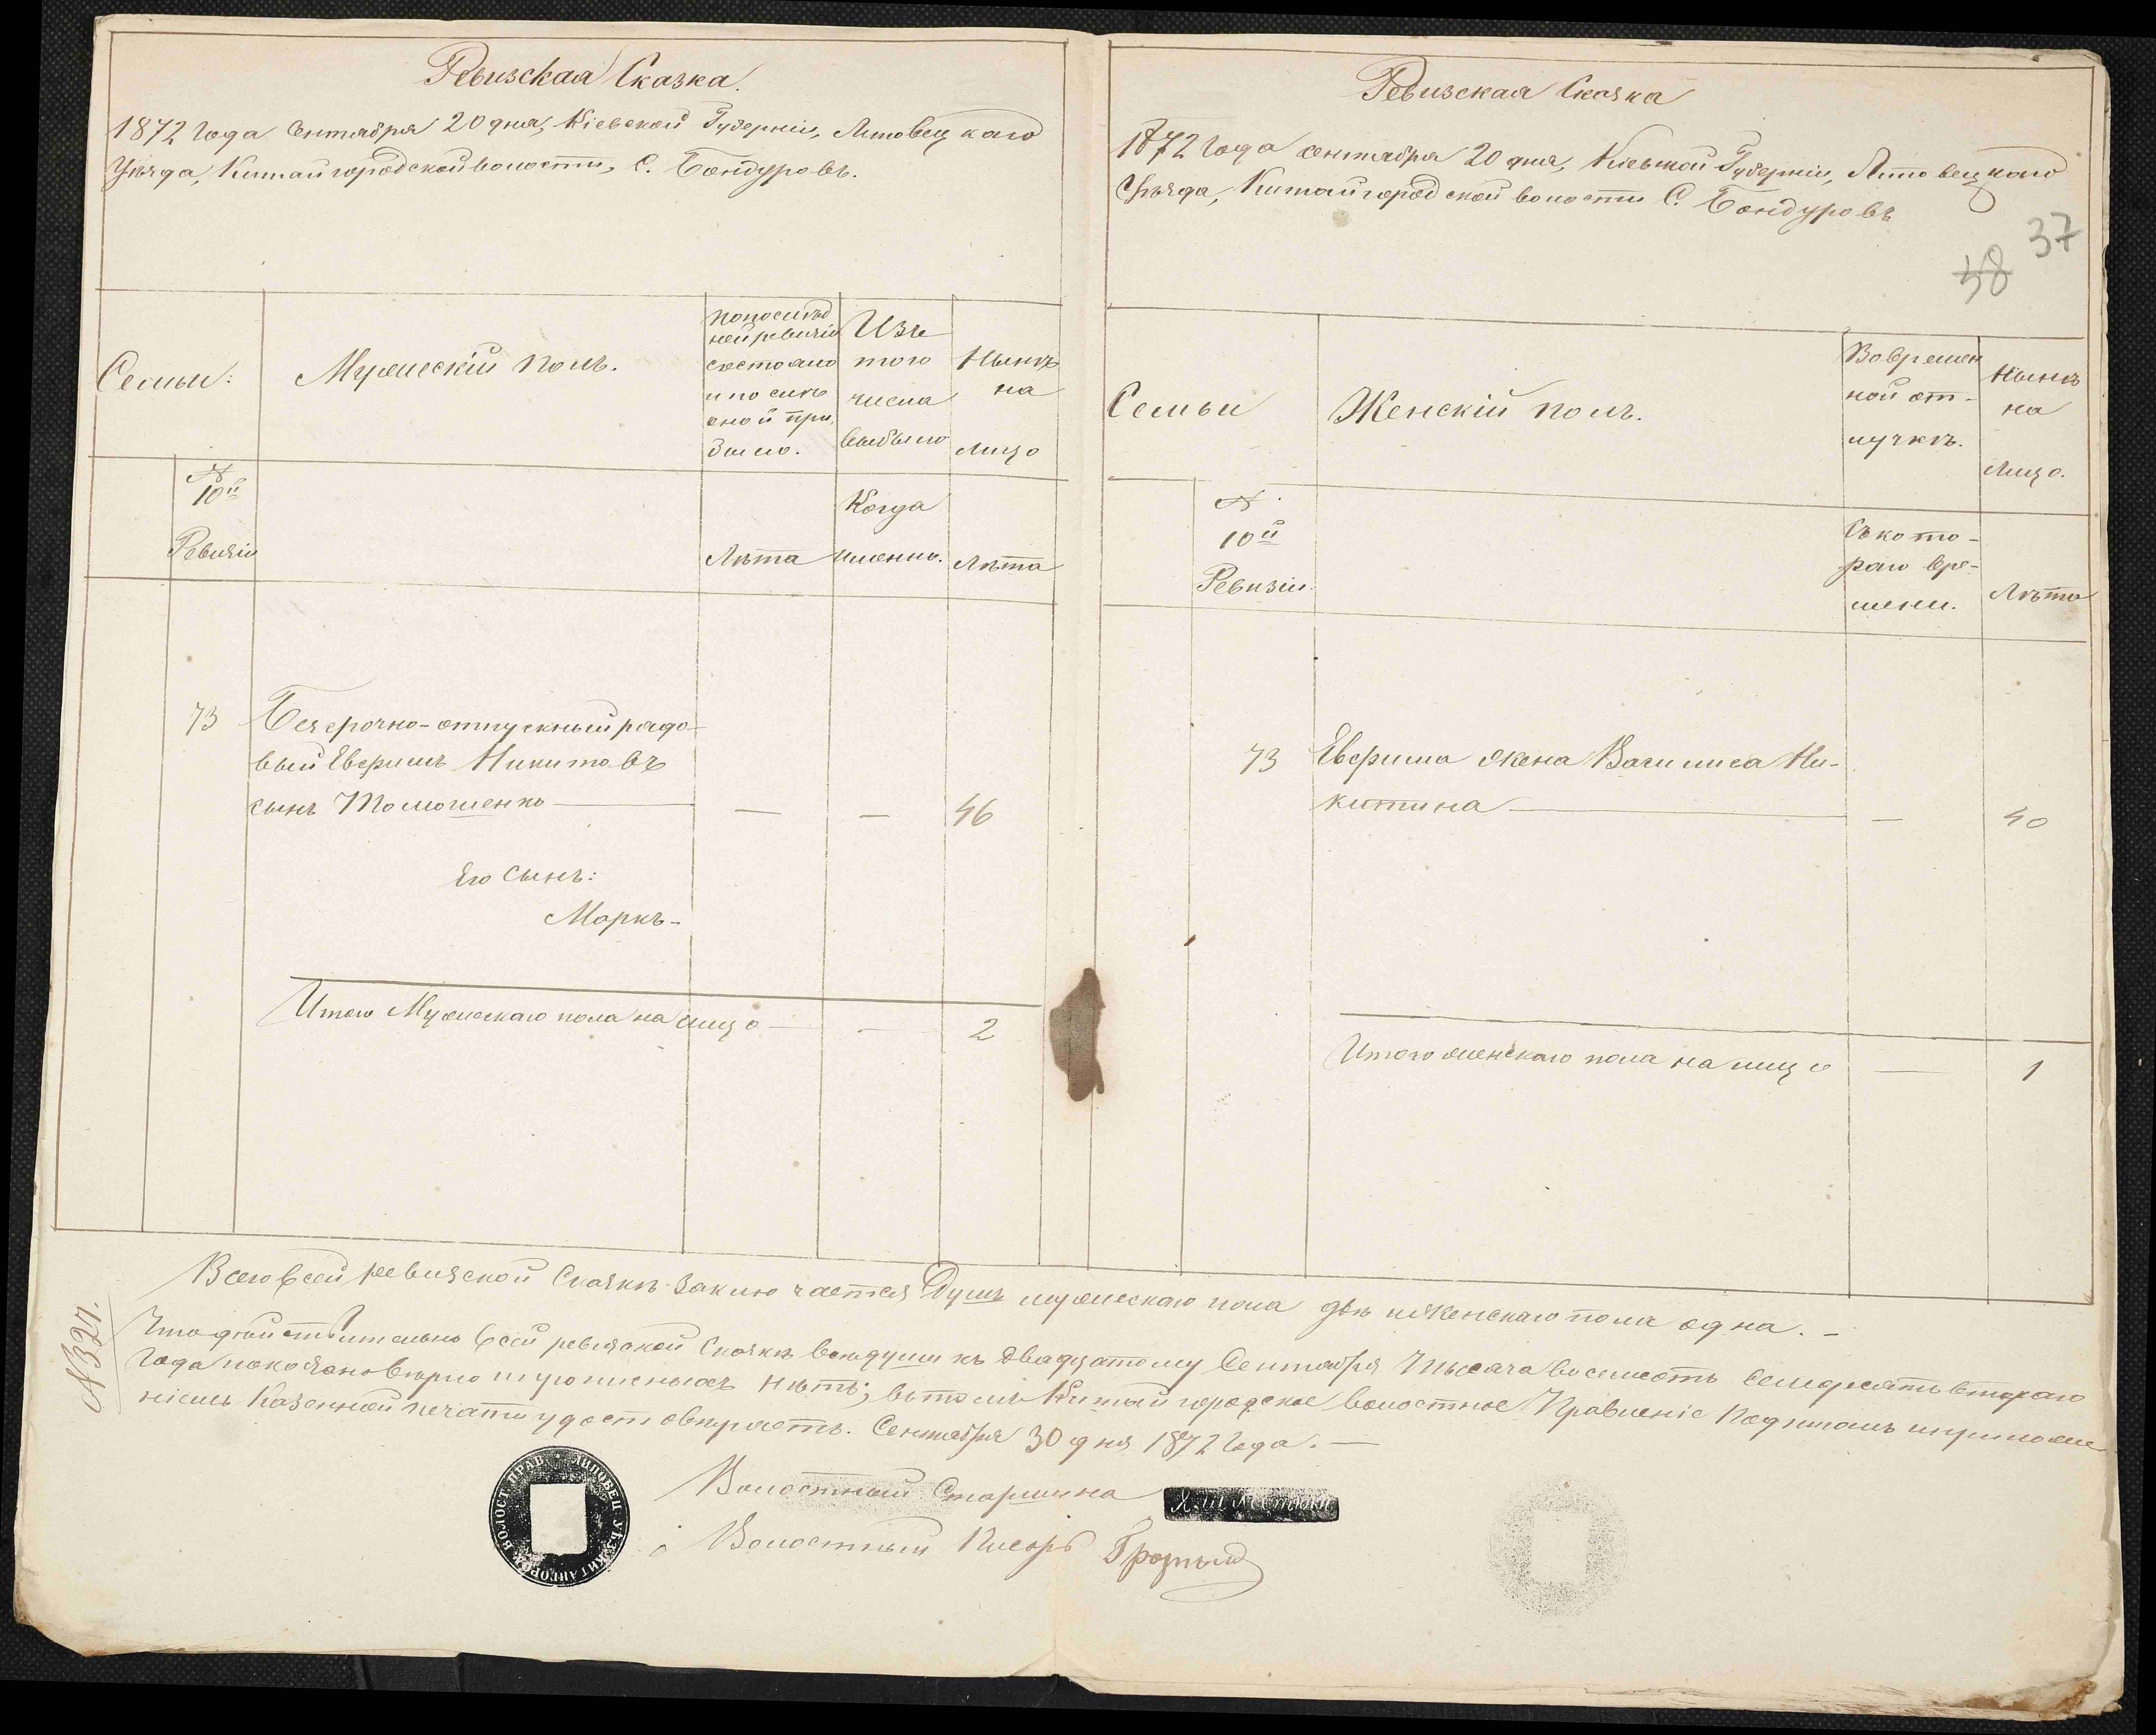 Ревизская Сказка.
1872 Года Сентября 20 дня, Кіевской Губерніи, Липовецкаго
Уѣзда, Китайгородской волости, С. Бондуровъ.
Семьи:
Мужескій полъ.
по послѣд
ней ревизіи
состояло
и послѣ
оной при
было.
Изъ
того
числа
выбыло
Нынѣ
на
лицо
№
10й
Ревизіи
Лѣта
Когда
именно.
Лѣта
73 Безсрочно-отпускный рядо-
вый Ефримъ Никитовъ
сынъ Томошенко — — — 46
Его Сынъ:
Маркъ-
Итого Мужескаго пола на лицо — — 2
Ревизская Сказка
1872 Года сентября 20 дня, Кіевской Губерніи, Липовецкаго
Уѣзда, Китайгородской волости С. Бондуровъ
37
38
Семьи
Женскій полъ.
Во времен
ной от-
лучкѣ.
Нынѣ
на
лицо.
№
10й
Ревизіи.
Съ кото-
раго вре-
мени.
Лѣта
73 Ефрима жена Василиса Ни-
китина — — 40
Итого женскаго пола на лицо — 1
№ 327.
Всего в сей ревизской Сказкѣ заключается Душъ мужескаго пола двѣ и Женскаго пола одна. –
Что действительно в сей ревизской Сказкѣ всѣ души къ двадцатому Сентября Тысяча восемсотъ семдесятъ втораго
Года показано вѣрно и прописныхъ нѣтъ; въ томъ Китайгородское волостное Правленіе Подписомъ и приложе
ніемъ Казенной печати удостовѣряетъ. Сентября 30 дня 1872 Года. —
Волостный Старшина
Волостный Писарь Грозный
ЛИПОВЕЦ. УѢЗ. КИТАЙГОРОД. ВОЛОСТ. ПРАВ.